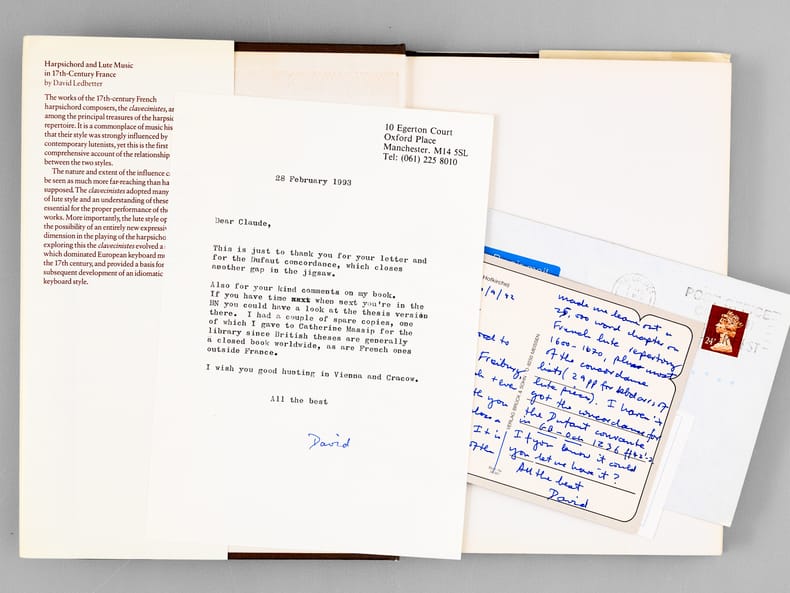 Harpsichord and Lute Music
in 17th-Century France
by David Ledbetter
The works of the 17th-century French
harpsichord composers, the clavecinistes, a
among the principal treasures of the harpsic
repertoire. It is a commonplace of music his
that their style was strongly influenced by
contemporary lutenists, yet this is the first
comprehensive account of the relationship
between the two styles.
The nature and extent of the influence c
be seen as much more far-reaching than ha
supposed. The clavecinistes adopted many
of lute style and an understanding of these
essential for the proper performance of the
works. More importantly, the lute style op
the possibility of an entirely new expressiv
dimension in the playing of the harpsicho
exploring this the clavecinistes evolved a
which dominated European keyboard mu
the 17th century, and provided a basis for
subsequent development of an idiomatic
keyboard style.
10 Egerton Court
Oxford Place
Manchester. M14 5SL
Tel: (061) 225 8010
28 February 1993
Dear Claude,
This is just to thank you for your letter and
for the Dufaut concordance, which closes
another gap in the jigsaw.
Also for your kind comments on my book.
If you have time next when next you're in the
BN you could have a look at the thesis version
there. I had a couple of spare copies, one
of which I gave to Catherine Massip for the
library since British theses are generally
a closed book worldwide, as are French ones
outside France.
I wish you good hunting in Vienna and Cracow.
All the best
David
Hofkirche)
/92
ood to
Freiburg,
th you
I is
VERLAG BRÜCK & SOHN
MEISSEN
made me lean out a
25,000 word chapter on
French lute repertory
1600-1670, plus most
of the concordance
lists (29pp for
lute pieces). I haven't
got the concordance for
the Dufaut courante
in GB-Och 1236
If you know it could
you let me have it?
All the best
David
POST OFFICE
ST
24